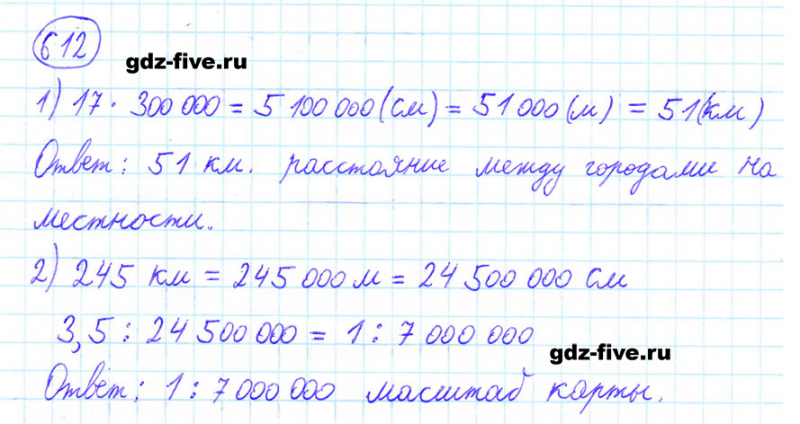 612
gdz-five.ru
1) 17 · 300 000 = 5 100 000 (см) = 51 000 (м) = 51 (км)
Ответ: 51 км. расстояние между городами на
местности.
2) 245 км = 245 000 м = 24 500 000 см
3,5 : 24 500 000 = 1 : 7 000 000
gdz-five.ru
Ответ: 1 : 7 000 000 масштаб карты.